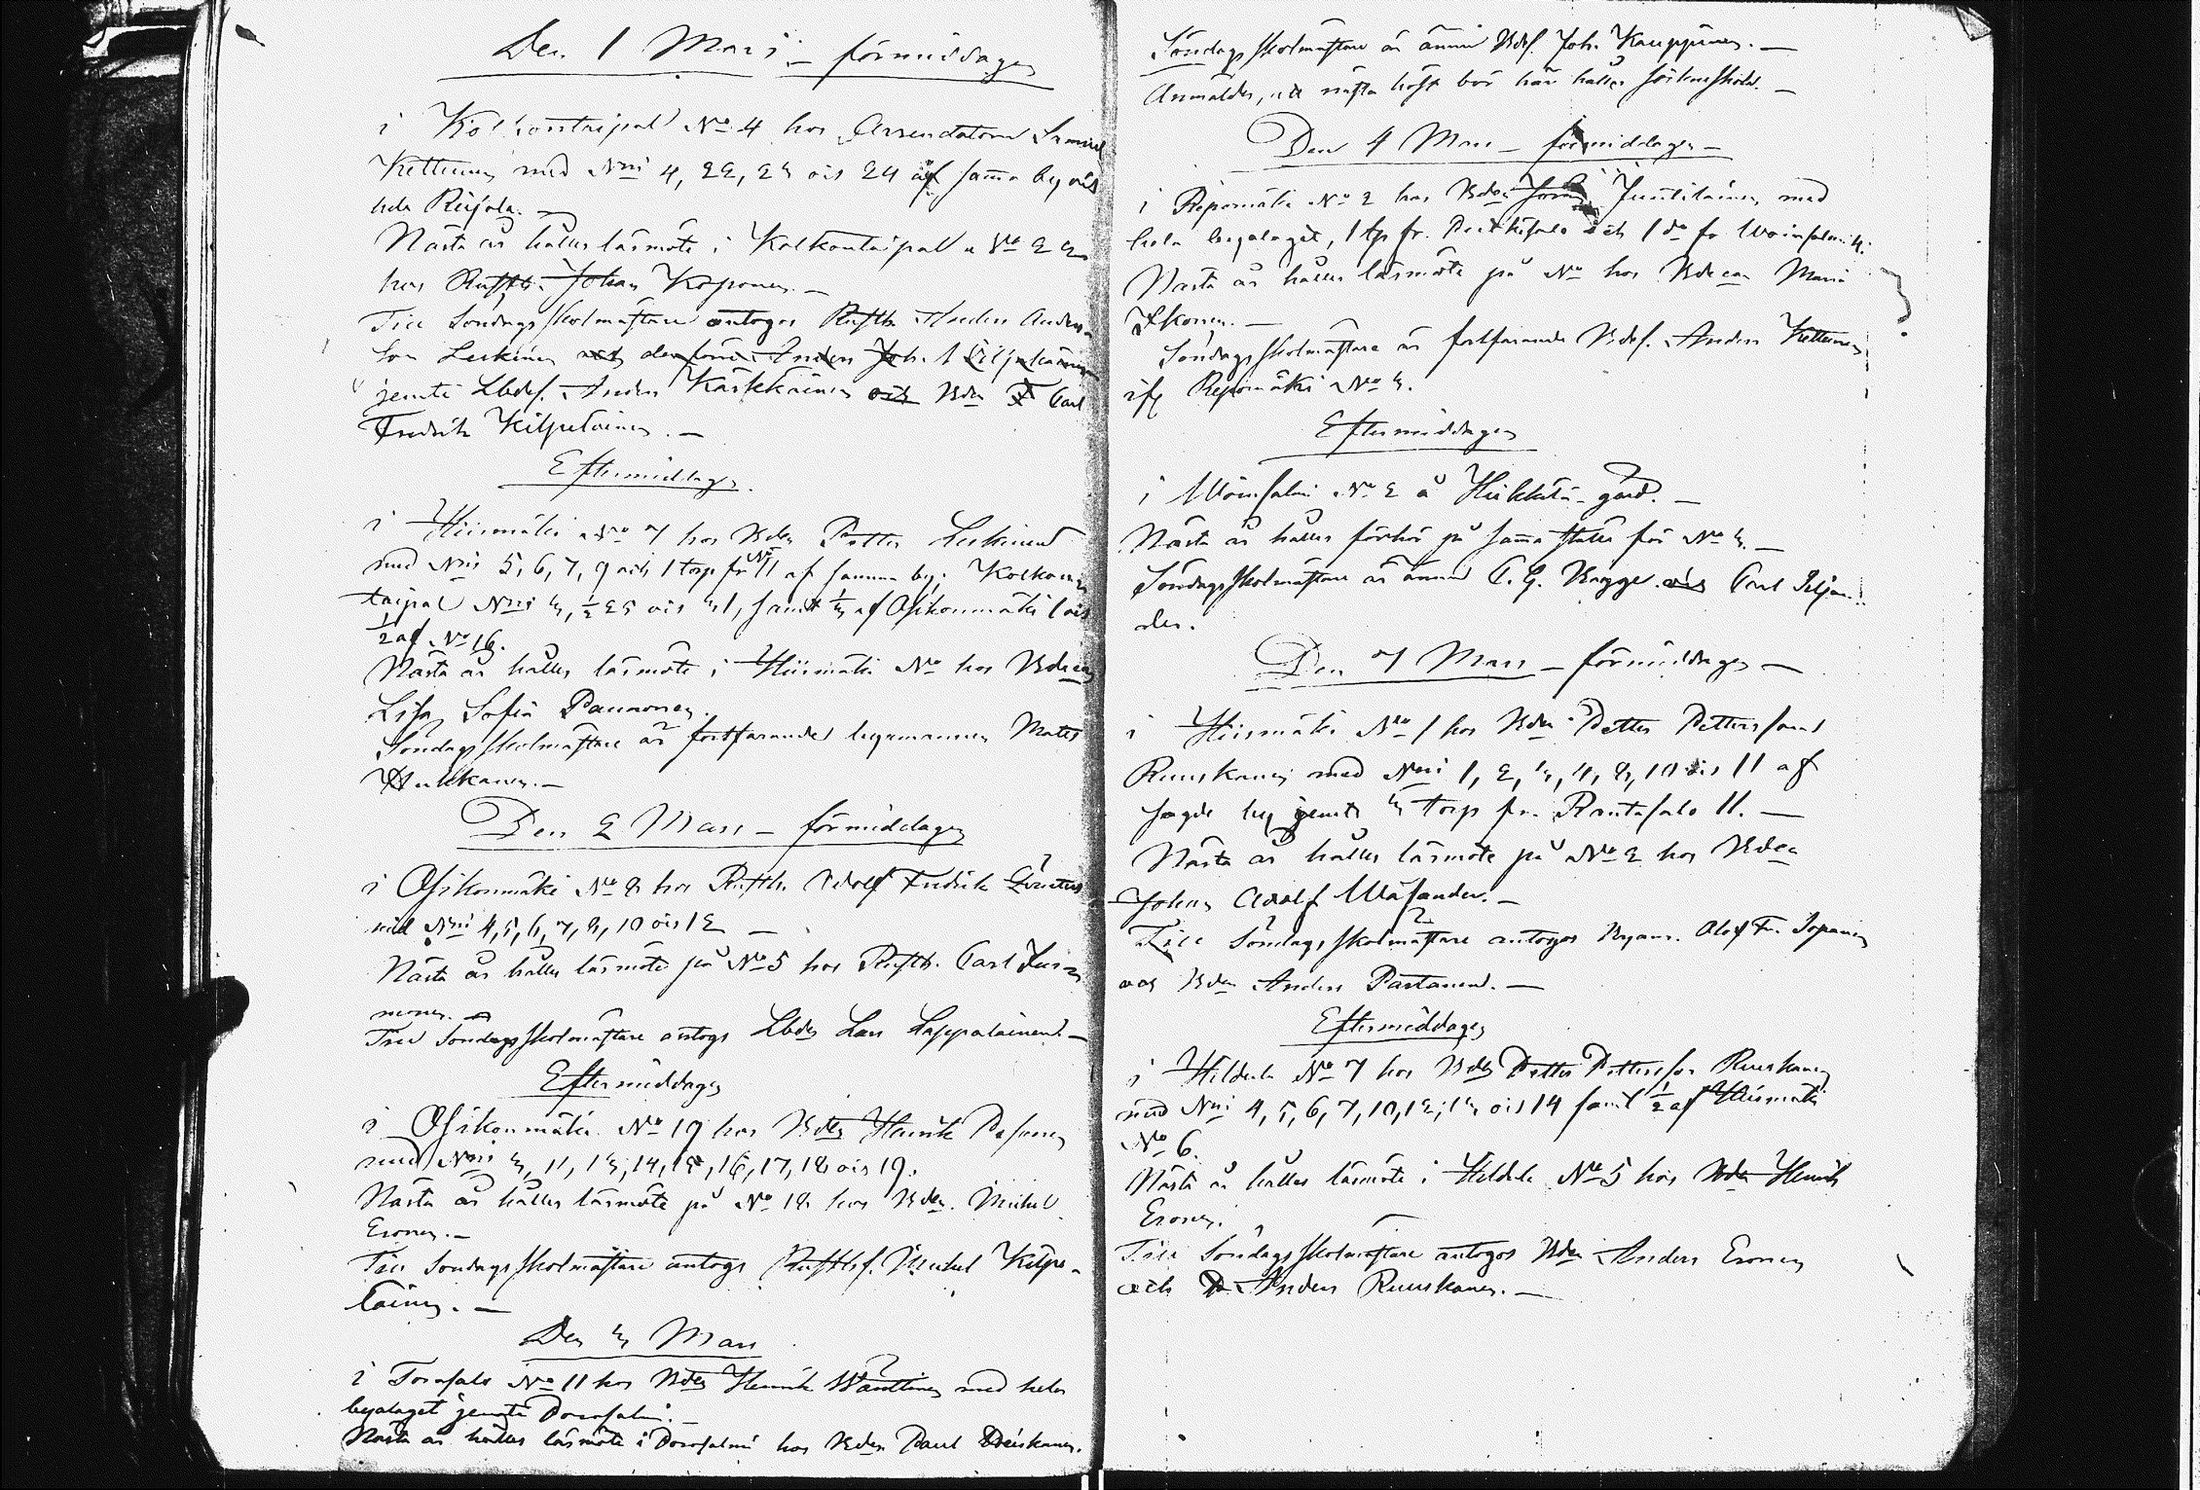 Den 1 Mars – förmiddagen
i Kolkontaipal No 4 hos Arrendatorn Samuel
Kettunen med Nris 4, 22, 23 och 24 af samma by och
hela Reijola. –
Nästa år hålles läsmöte i Kolkontaipal No 23
hos Rusth. Johan Koponen. –
Till Söndagsskolmästare antogos Rusth. Anders Anders-
son Leskinen
jemte Lbdes. Anders Kärkkäinen och Bden Carl
Fredrik Kilpeläinen. –
Eftermiddagen.
i Hiismäki No 7 hos Bden Petter Leskinen
med Nris 5, 6, 7, 9 och 1 torp fr. No 11 af samma by; Kolkon-
taipal Nris 3, ½ 25 och 31, samt ⅓ af Osikonmäki 1 och
½ af No 16.
Nästa år hålles läsmöte i Hiismäki No hos Bdean
Lisa Sofia Paunonen.
Söndagsskolmästare är fortfarande bymannen Mats
Hulkkonen. –
Den 2 Mars – förmiddagen
i Osikonmäki No 8 hos Rusth. Adolf Fredrik
med Nris 4, 5, 6, 7, 8, 10 och 12 –
Nästa år hålles läsmöte på No 5 hos Rusth. Carl
nonen. –
Till Söndagsskolmästare antogs Lbden Lars Lappalainen. –
Eftermiddagen
i Osikonmäki No 19 hos Bden Henrik Pasanen
med Nris 3, 11, 13, 14, 15, 16, 17, 18 och 19.
Nästa år hålles läsmöte på No 18 hos Bden Michel
Eronen. –
Till Söndagsskolmästare antogs Rusths. Michel Kilpe-
läinen. –
Den 3 Mars
i Torasalo No 11 hos Bden Henrik Wänttinen med hela
byalaget jemte Porosalmi. –
Nästa år hålles läsmöte i Porosalmi hos Bden Paul
Söndagsskolmästare är ännu Bdes. Joh. Kauppinen. –
Anmäldes, att nästa höst bör här hållas sockneskola. –
Den 4 Mars – förmiddagen –
i Repomäki No 2 hos Bden Juntilainen med
hela byalaget, 1 tp fr. och 1 do fr
Nästa år hålles läsmöte på No hos Bdean Maria
Ikonen. –
Söndagsskolmästare är fortfarande Bdes. Anders Kettunen
ifr. Repomäki No 3.
Eftermiddagen
i Woinsalmi No 2 å Hiekkilä gård. –
Nästa år hålles förhör på samma ställe för No 3. –
Söndagsskolmästare är ännu C. G. Bagge och Carl Siljan-
der.
Den 7 Mars – förmiddagen –
i Hiismäki No 1 hos Bden Petter Petterson
Ruuskanen med Nris 1, 2, 3, 4, 8, 10 och 11 af
sagde by jemte 3 torp fr. Rantasalo 11. –
Nästa år hålles läsmöte på No 2 hos Bden
Johan Adolf Wäisänen. –
Till Söndagsskolmästare antogos Bym. Olof Fr. Sopanen
och Bden Anders Partanen. –
Eftermiddagen
i Hiidenlä No 7 hos Bden Petter Petterson Ruuskanen
med Nris 4, 5, 6, 7, 10, 12, 13 och 14 samt ½ af Hiismäki
No 6.
Nästa år hålles läsmöte i No 5 hos Bden Henrik
Eronen.
Till Söndagsskolmästare antogos Bden Anders Eronen
och Anders Ruuskanen. –